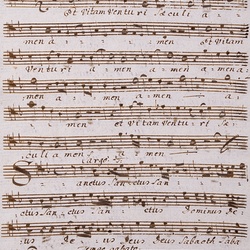 Et Vitam Venturi Sæculi a
men a men Et Vitam
Venturi a men a men a
men a men a
men et Vitam Venturi Sæ
culi a men Largo
Sanctus Sanctus San
ctus Sanctus Dominus De
us De us Deus Deus Sabaoth Saba